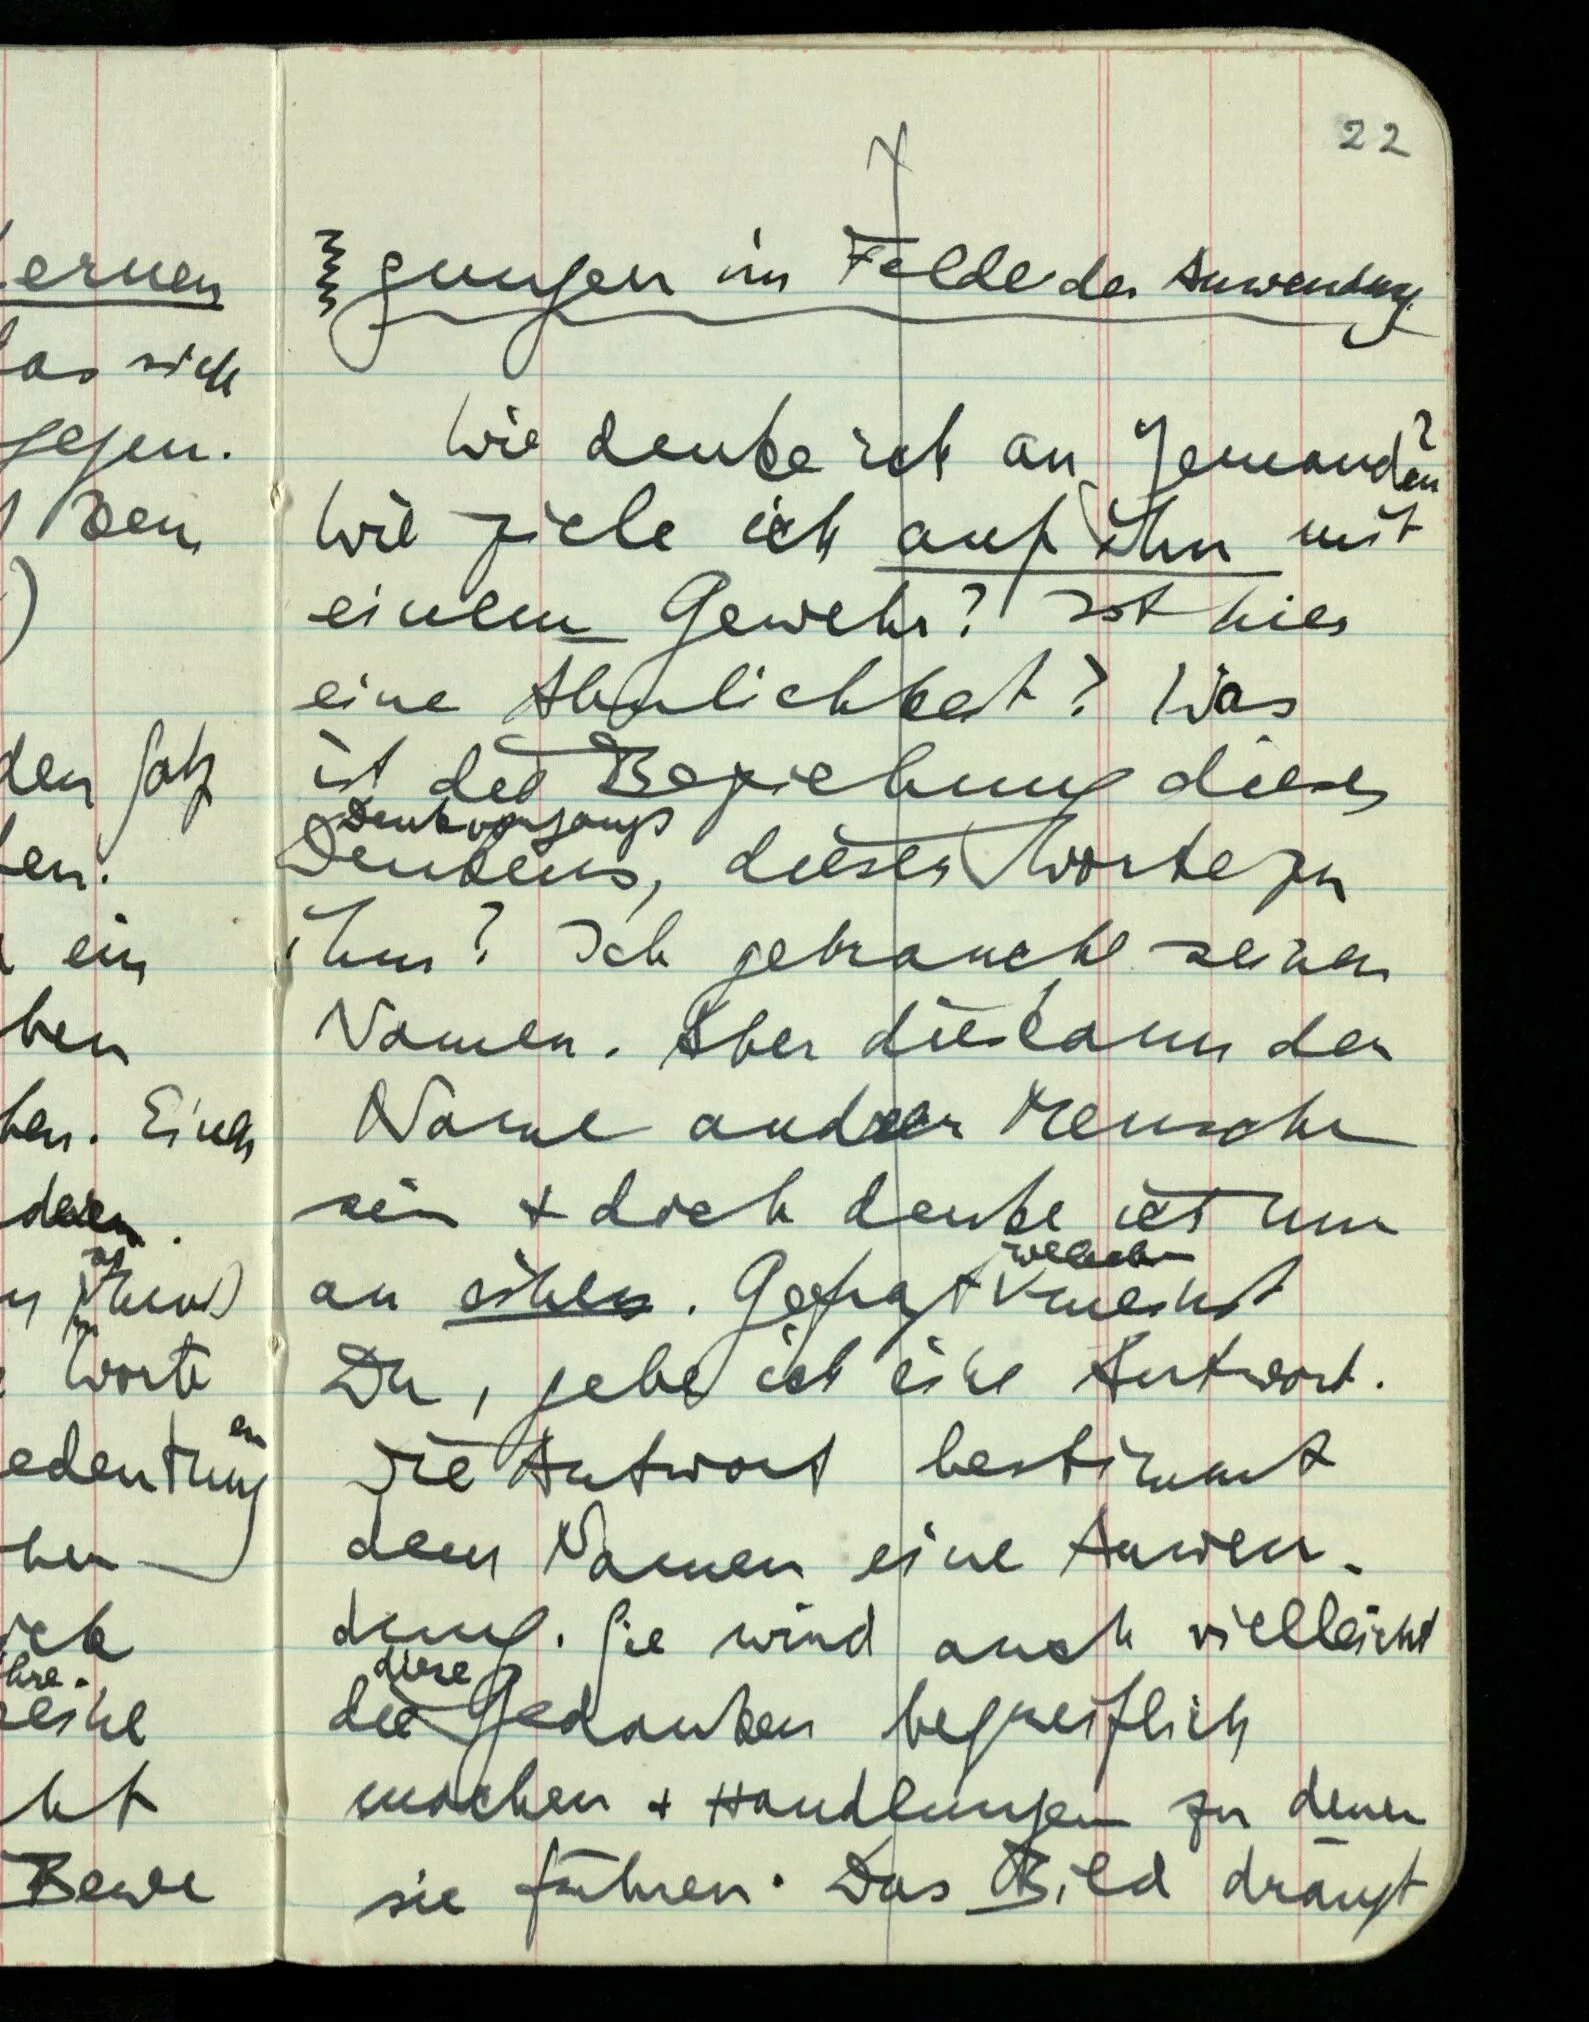 22
gungen im Felde der Anwendung.
Wie denke ich an Jemanden?
Wie ziele ich auf ihn mit
einem Gewehr? Ist hier
eine Ähnlichkeit? Was
ist die Beziehung dieses
Denkvorgangs
Denkens, dieser Worte zu
ihm? Ich gebrauche seinen
Namen. Aber dies kann der
Name andrer Menschen
sein + doch denke ich nur
an einen. Gefragt welchen meinst
Du, gebe ich eine Antwort.
Die Antwort bestimmt
dem Namen eine Anwen-
dung. Sie wird auch vielleicht
diese
die Gedanken begreiflich
machen + Handlungen zu denen
sie führen. Das Bild drängt
ernen
das sich
gegen.
den
den Satz
ein
ben
Einer
Worte
edeutungen
Bewe